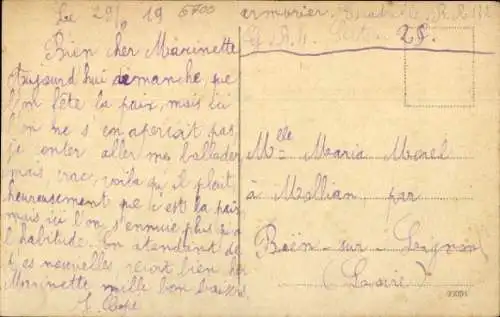 Le 29/6 19
Bien cher Marinette
Aujourd'hui dimanche que
l'on fête la paix, mais ici
l'on ne s'en aperçoit pas
je aller me ballader
mais crac, voila qu'il pleut,
heureusement que c'est la paix
mais ici l'on s'ennuie plus a
l'habitude. En attendant de
tes nouvelles reçoit bien
Marinette mille bon baisers
6700
armurier
28.
Mlle Maria Morel
à Mollian par
Boën-sur-Lignon
(Loire)